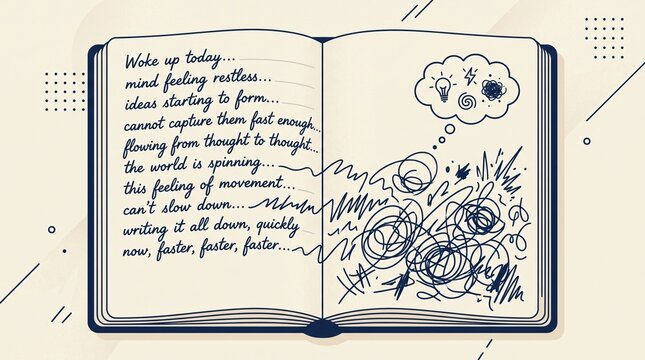 Woke up today...
mind feeling restless...
ideas starting to form...
cannot capture them fast enough...
flowing from thought to thought...
the world is spinning...
this feeling of movement...
can't slow down...
writing it all down, quickly
now, faster, faster, faster...